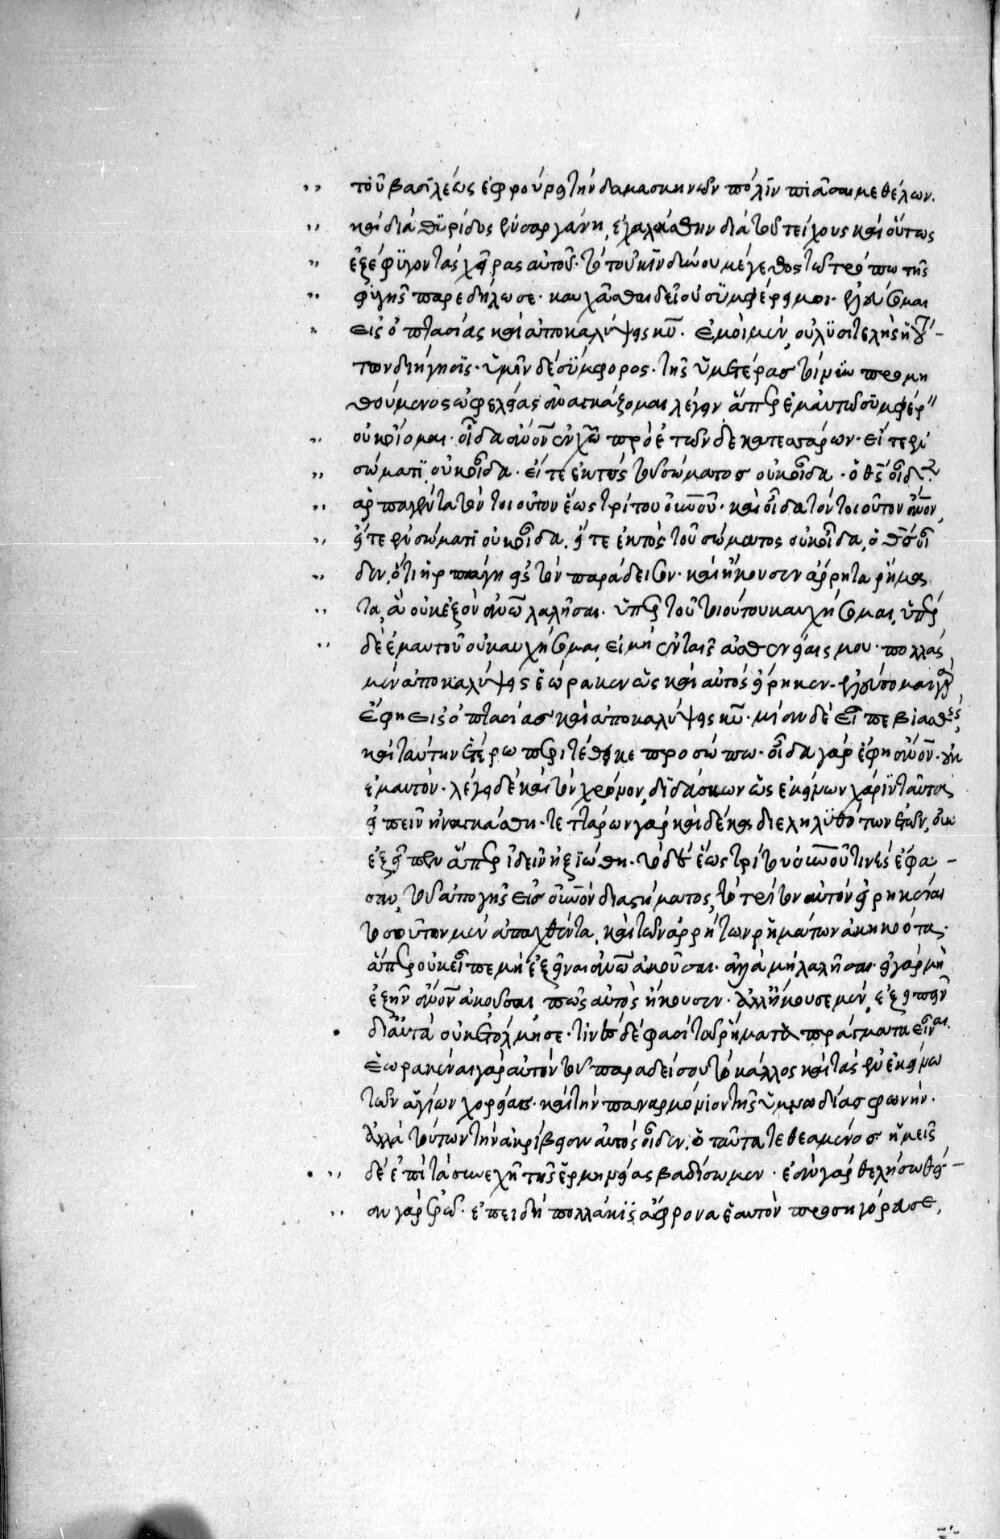 τοῦ βασιλέως ἐφρούρει τὴν δαμασκηνῶν πόλιν πιᾶσαι με θέλων.
καὶ διὰ θυρίδος ἐν σαργάνῃ, ἐχαλάσθην διὰ τοῦ τείχους καὶ οὕτως
ἐξέφυγον τὰς χεῖρας αὐτοῦ· τὸ τοῦ κινδύνου μέγεθος τῷ τρόπω τῆς
φυγῆς παρεδήλωσε· καυχᾶσθαι δεῖ οὐ συμφέρει μοι· ἐλεύσομαι
εἰς ὀπτασίας καὶ ἀποκαλύψεις κυ̅· ἐμοὶ μὲν, οὐ λυσιτελὴς ἡ
των διήγησις· ὑμῖν δὲ σύμφορος· τῆς ὑμετέρας τοίνυν προμη
θούμενος ὠφελείας ἀναγκάζομαι λέγειν ἅπερ ἐμαυτῷ συμφέρ
οὐκ οἴομαι· οἶδα ἄνον ἐν χω̅ πρὸ ἐτῶν δεκατεσσάρων· εἴτε ἐν
σώματι, οὐκ οἶδα· εἴτε ἐκτὸς τοῦ σώματος οὐκ οἶδα· ὁ θς̅ οἶδε
ἁρπαγέντα τὸν τοιοῦτον ἕως τρίτου οὐνοῦ· καὶ οἶδα τὸν τοιοῦτον ἄνον,
εἴτε ἐν σώματι οὐκ οἶδα, εἴτε ἐκτὸς τοῦ σώματος οὐκ οἶδα, ὁ θς̅ οἶ
δεν, ὅτι ἡρπάγη εἰς τὸν παράδεισον· καὶ ἤκουσεν ἄρρητα ῥήμα
τα, ἃ οὐκ ἐξὸν ἀνω̅ λαλῆσαι· ὑπὲρ τοῦ τοιούτου καυχήσομαι, ὑπὲρ
δὲ ἐμαυτοῦ οὐ καυχήσομαι, εἰ μὴ ἐν ταῖς ἀσθενείαις μου· πολλὰς
μὲν ἀποκαλύψεις ἑώρακεν ὡς καὶ αὐτὸς εἴρηκεν· ἐλεύσομαι γὰρ
ἔφη εἰς ὀπτασίας καὶ ἀποκαλύψεις κυ̅· μίαν δὲ εἶπε βιασθεὶς,
καὶ ταύτην ἑτέρω περιτέθεικε προσώπω· οἶδα γὰρ ἔφη ἄνον· οὐκ
ἐμαυτόν· λέγει δὲ καὶ τὸν χρόνον, διδάσκων ὡς ἐκείνων χάριν ταῦτα
εἰπεῖν ἠναγκάσθη· τεττάρων γὰρ καὶ δέκα διεληλυθότων ἐτῶν, οὐκ
ἐξεῖπεν ἅπερ ἰδεῖν ἠξιώθη· τὸ δὲ ἕως τρίτου οὐνοῦ τινὲς ἔφα
σαν, τοῦ ἀπὸ γῆς εἰς οὐνὸν διαστήματος, τὸ τρίτον αὐτὸν εἰρηκέναι
τοσοῦτον μὲν ἀπαχθέντα, καὶ τῶν ἀρρήτων ῥημάτων ἀκηκοότα·
ἅπερ οὐκ εἶπε μὴ ἐξεῖναι ἀνω̅ ἀκοῦσαι· ἀλλὰ μὴ λαλῆσαι· εἰ γὰρ μὴ
ἐξῆν ἄνον ἀκοῦσαι, πῶς αὐτὸς ἤκουσεν· ἀλλ' ἤκουσε μὲν, ἐξειπεῖν
δὲ αὐτὰ οὐκ ἐτόλμησε· τινὲς δέ φασι τὰ ῥήματα πράγματα εἶναι.
ἑωρακέναι γὰρ αὐτὸν τοῦ παραδείσου τὸ κάλλος καὶ τὰς ἐν ἐκείνω
τῶν ἁγίων χορείας· καὶ τὴν παναρμόνιον τῆς ὑμνωδίας φωνήν·
ἀλλὰ τούτων τὴν ἀκρίβειαν αὐτὸς οἶδεν, ὁ ταῦτα τεθεαμένος ἡμεῖς
δὲ ἐπὶ τὰ συνεχῆ τῆς ἑρμηνείας βαδίσωμεν· ἐὰν γὰρ θελήσω
ἐπειδὴ πολλάκις ἄφρονα ἑαυτὸν προσηγόρασε,